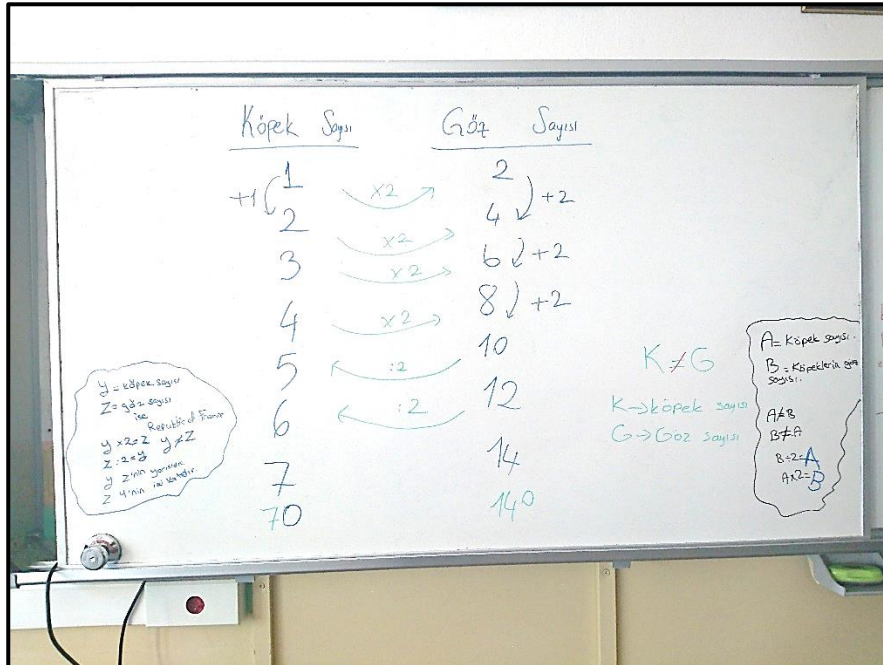 Köpek Sayısı Göz Sayısı
1 x2 2
+1 +2
2 4
x2
3 x2 6 +2
8 +2
4 x2
10
5 :2
12
6 :2
14
7
70 140
K≠G
K→köpek sayısı
G→Göz sayısı
y = köpek sayısı
Z = göz sayısı
ise
Republic of France
y x2=Z y≠Z
Z:2=y
y Z'nin yarısıdır.
Z y'nin iki katıdır.
A= Köpek sayısı.
B = Köpeklerin göz
sayısı.
A≠B
B≠A
B÷2=A
Ax2=B